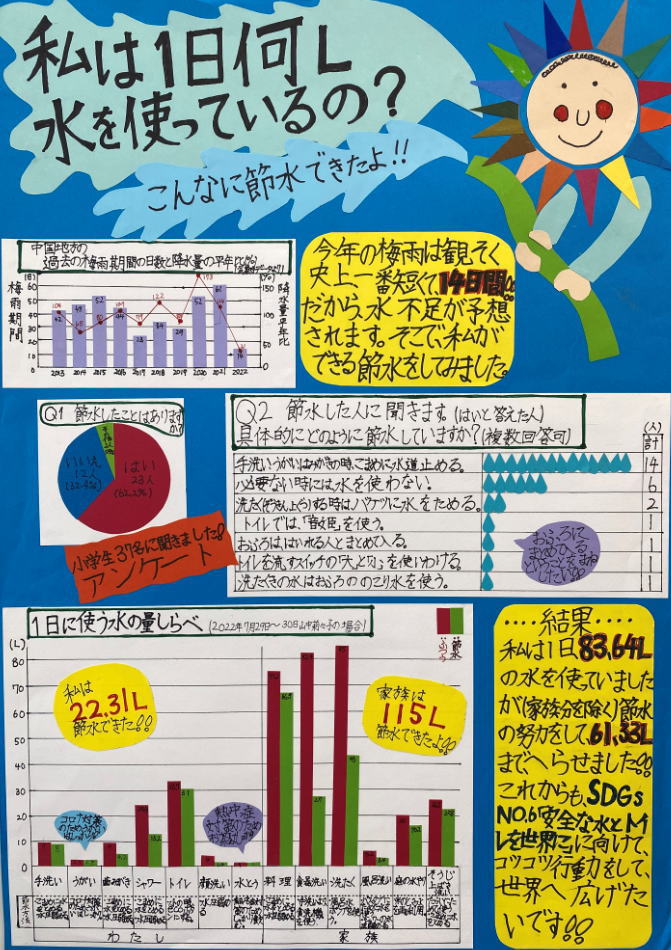 私は1日何L
水を使っているの？
こんなに節水できたよ!!
中国地方の
過去の梅雨期間の日数と降水量の平年比
梅雨期間
降水量平年比
(%)
2013 2014 2015 2016 2017 2018 2019 2020 2021 2022
今年の梅雨は観そく
史上、一番短くて14日間!!
だから、水不足が予想
されます。そこで、私が
できる節水をしてみました。
Q1 節水したことはありますか
いいえ
12人
(32.4%)
はい
23人
(62.2%)
小学生37名に聞きました!
アンケート
Q2 節水した人に聞きます(はいと答えた人)
具体的にどのように節水していますか?(複数回答可)
(人)
計
手洗いうがいはみがきの時、こまめに水道止める。 14
必要ない時には水を使わない。 6
洗たく(ぞうきんしょう)する時は、バケツに水をためる。 2
トイレでは、「音姫」を使う。 1
おふろは、はいれる人とまとめ入る。 1
トイレを流すスイッチの「大と小」を使いわける。 1
洗たくきの水はおふろののこり水を使う。 1
おふろに
まとめ入る
ということをまね
したい!!
1日に使う水の量しらべ
(L)
80
70
60
50
40
30
20
10
0
節水
ふつう
私は
22.31L
節水できた!!
家族は
115L
節水できたよ!!
コロナ対策
熱中症
手洗い うがい 歯みがき シャワー トイレ 顔洗い 水とう 料理 食器洗い 洗たく 風呂洗い 庭の水やり そうじ
わたし 家族
・・・・結果・・・・
私は1日83,64L
の水を使っていました
が(家族分を除く)節水
の努力をして、61,33L
までへらせました!!
これからも、SDGs
NO.6安全な水とトイ
レを世界中に向けて、
コツコツ行動をして、
世界へ広げた
いです!!